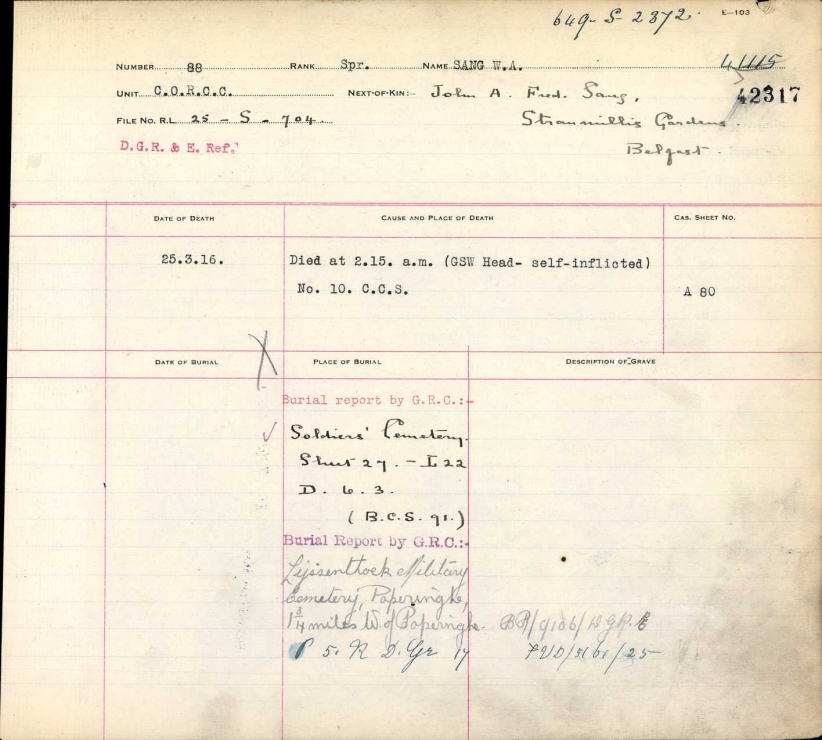 649-S-2372. E-103
NUMBER 88 RANK Spr. NAME SANG W.A. 41115
UNIT C.O.R.C.C. NEXT-OF-KIN:- John A. Fred. Sang, 42317
FILE NO. R.L. 25 - S - 704. Stranmillis Gardens.
D.G.R. & E. Ref. Belfast.
DATE OF DEATH CAUSE AND PLACE OF DEATH CAS. SHEET NO.
25.3.16. Died at 2.15. a.m. (GSW Head- self-inflicted)
No. 10. C.C.S. A 80
DATE OF BURIAL PLACE OF BURIAL DESCRIPTION OF GRAVE
Burial report by G.R.C.:-
Soldiers' Cemetery.
Sheet 27. - I 22
D. 6. 3.
(B.C.S. 91.)
Burial Report by G.R.C.:-
Lijssenthock Military
Cemetery, Poperinghe,
1 3/4 miles W. of Poperinghe.
P 5. R D. Gr 17